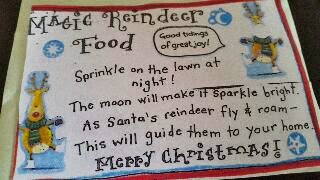 Magic Reindeer
Food
Good tidings
of great joy!
Sprinkle on the lawn at
night!
The moon will make it sparkle bright.
As Santa's reindeer fly & roam—
This will guide them to your home.
Merry Christmas!